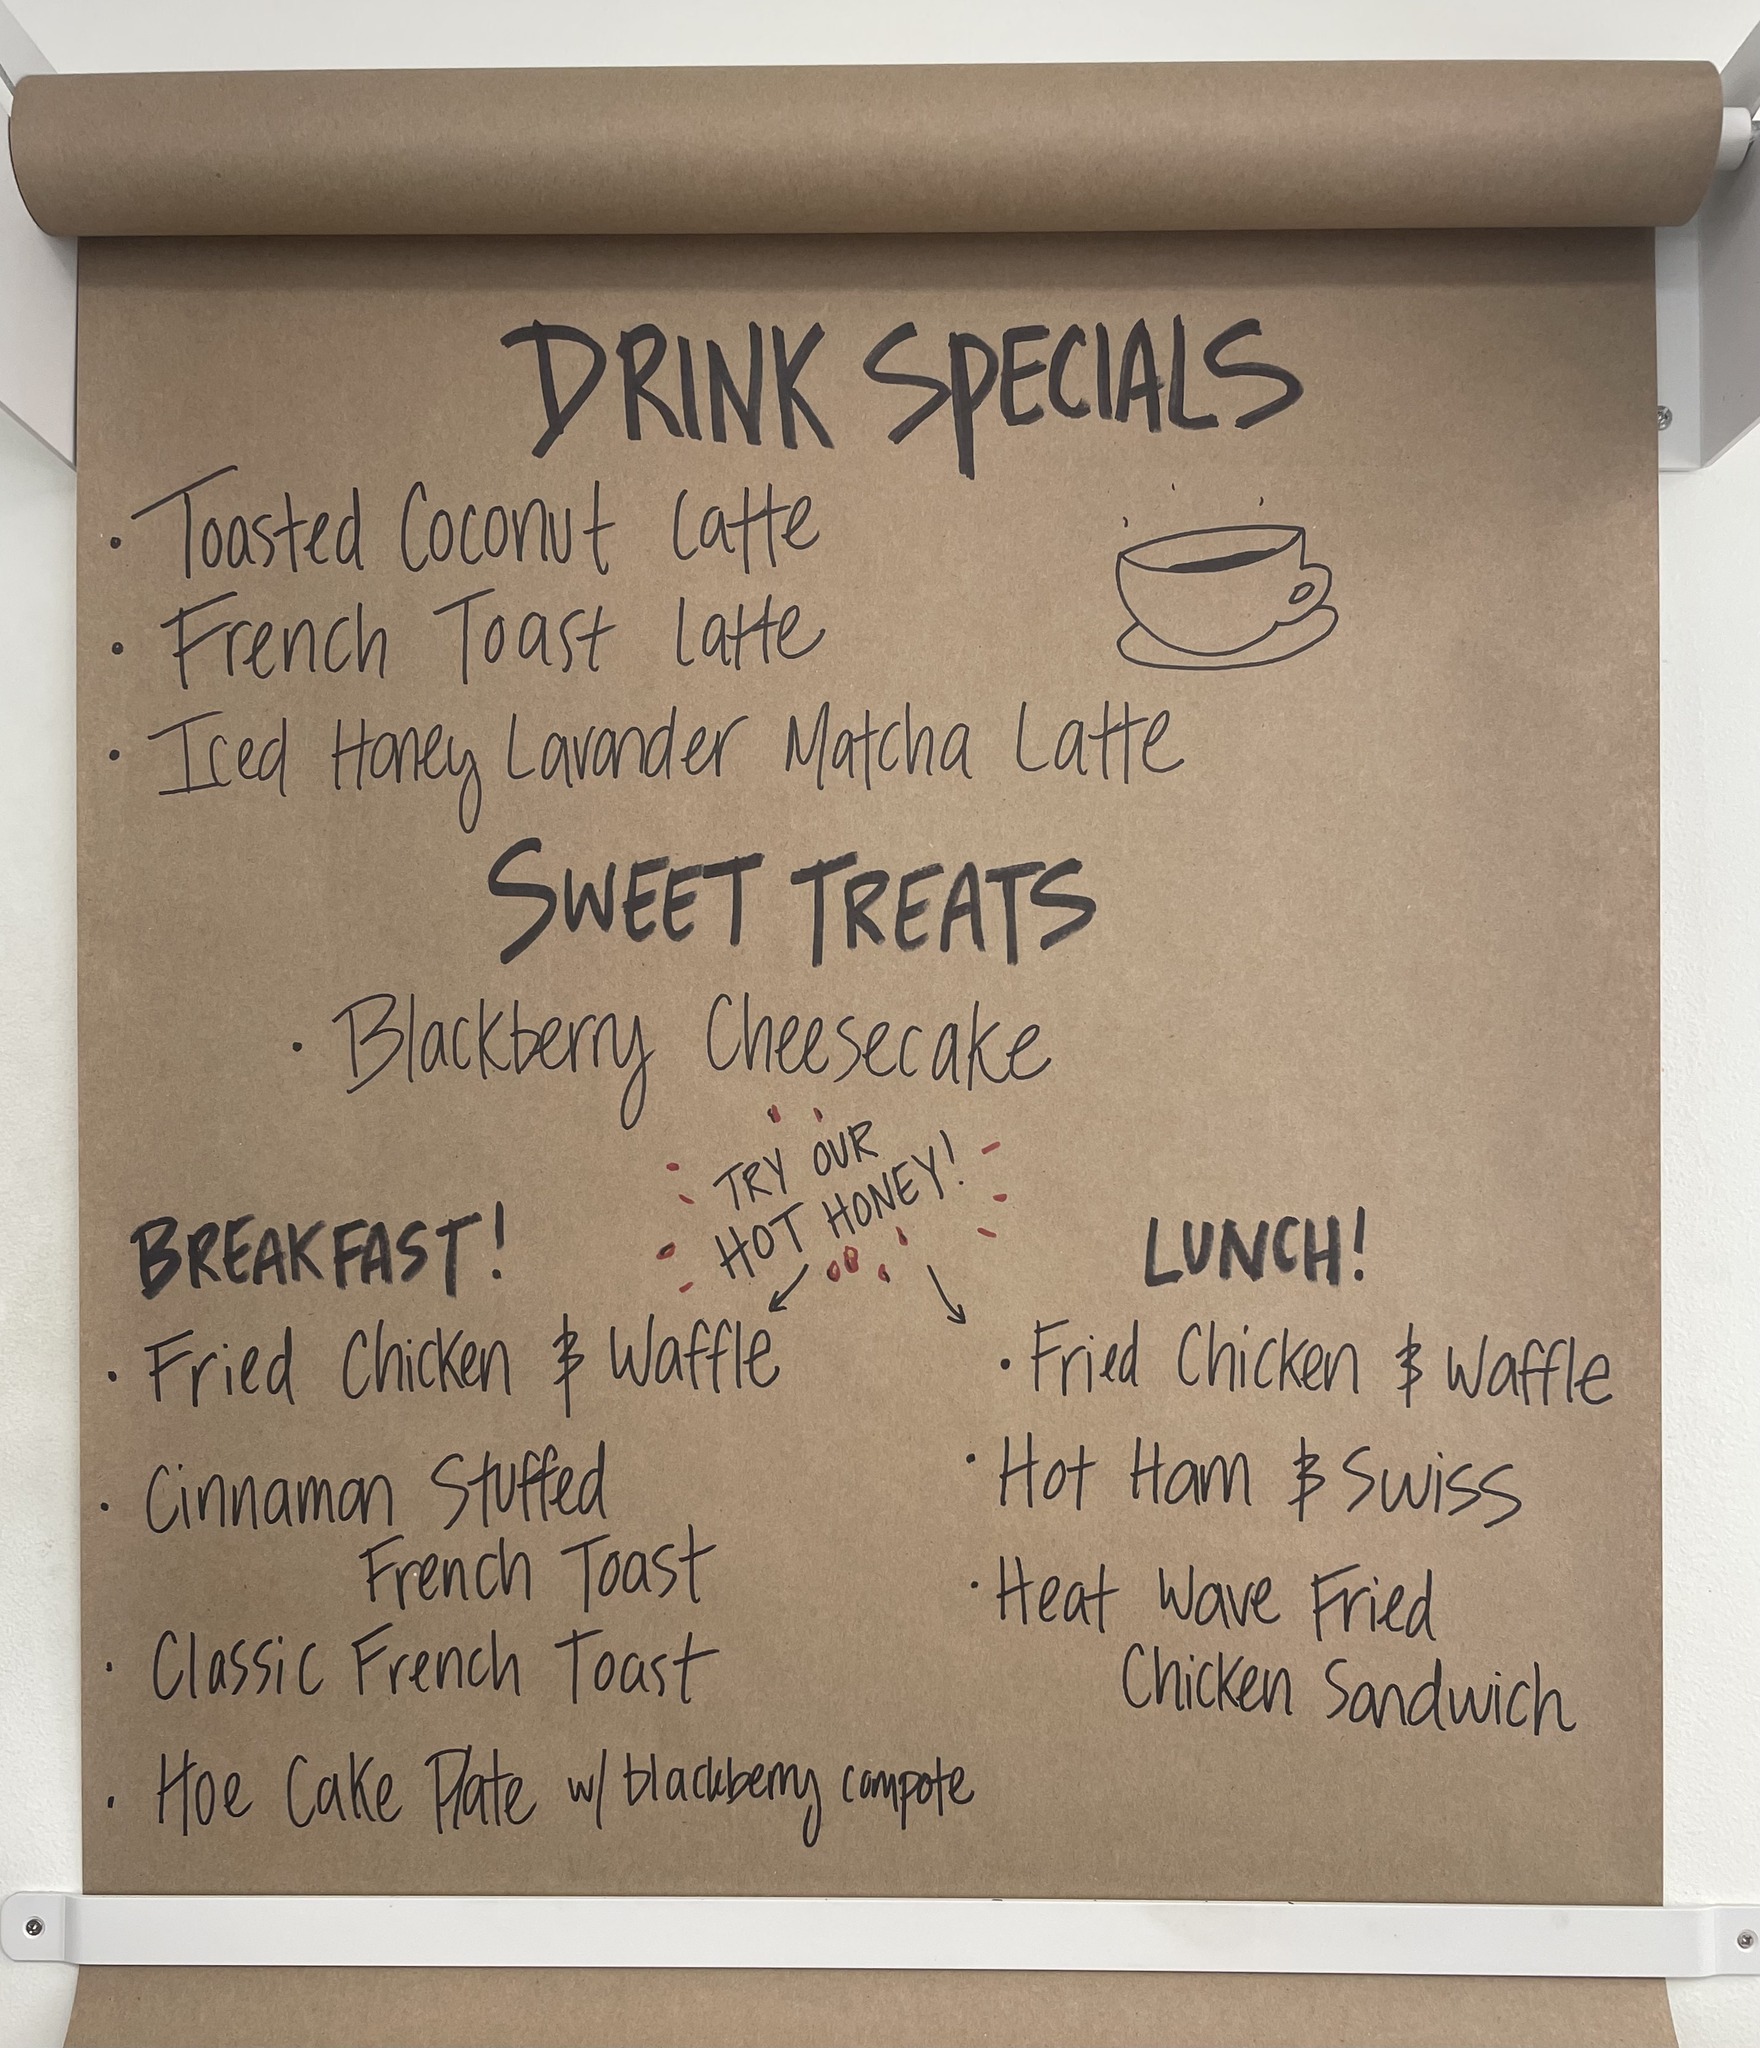 DRINK SPECIALS
· Toasted Coconut Latte
· French Toast Latte
· Iced Honey Lavander Matcha Latte
SWEET TREATS
· Blackberry Cheesecake
TRY OUR
HOT HONEY!
BREAKFAST!
· Fried Chicken & Waffle
· Cinnamon Stuffed
French Toast
· Classic French Toast
· Hoe Cake Plate w/ blackberry compote
LUNCH!
· Fried Chicken & Waffle
· Hot Ham & Swiss
· Heat Wave Fried
Chicken Sandwich